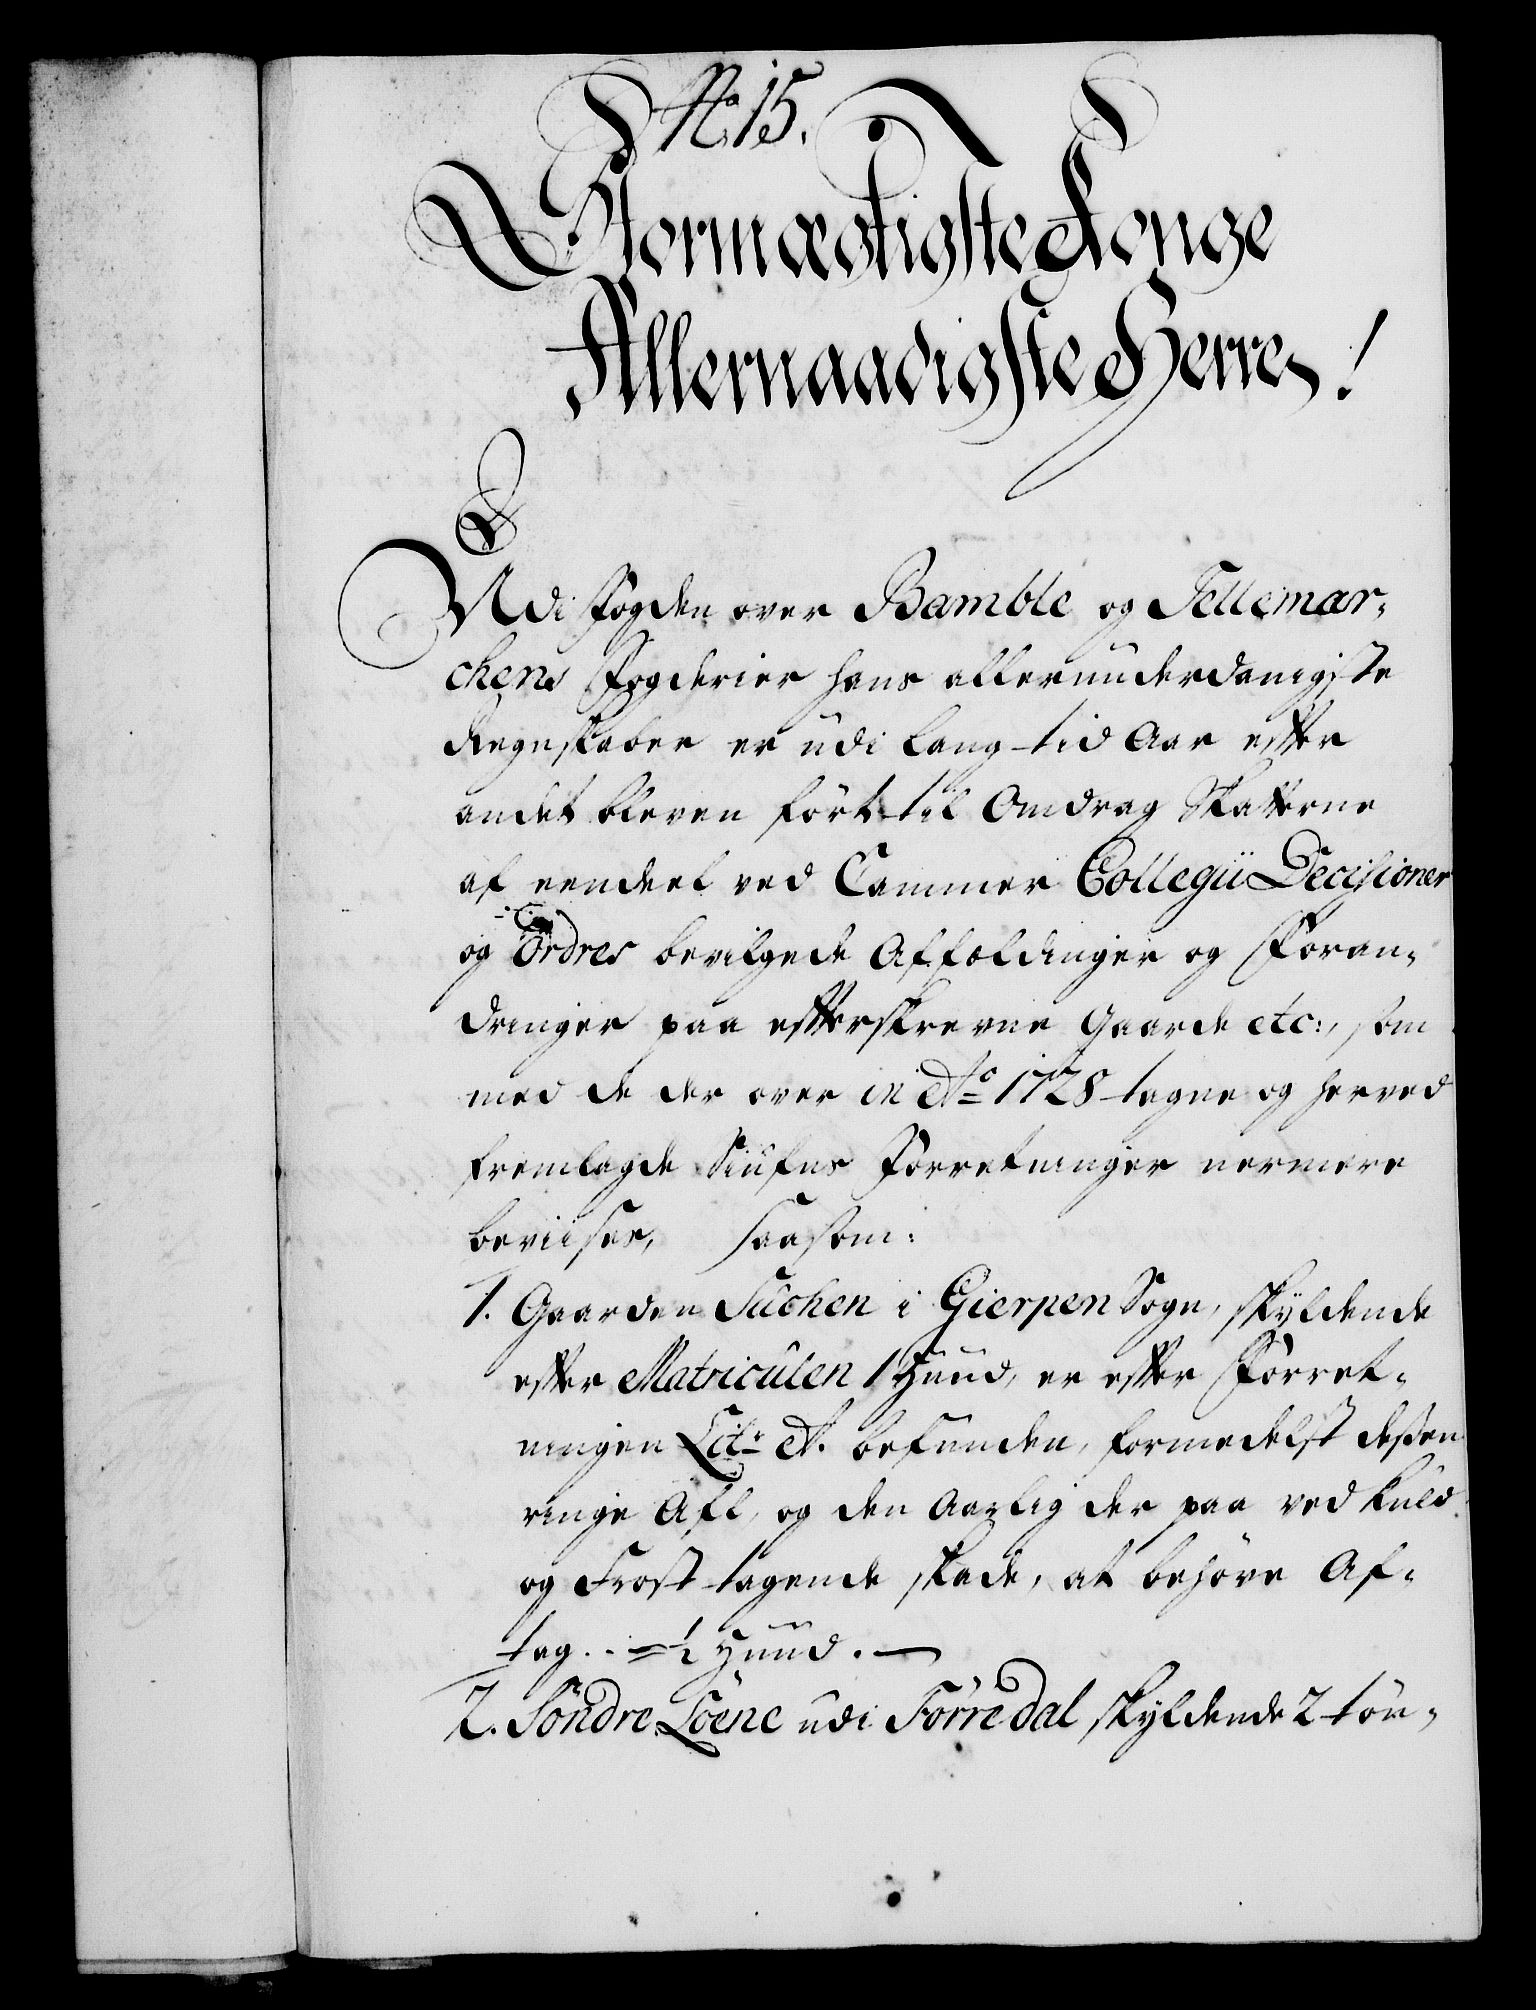 No. 15.
Stormægtigste Konge
Allernaadigste Herre!
Udi Fogden over Bamble og Tellemar-
chens Fogderier hans allerunderdanigste
Regnskaber er udi lang tid Aar efter
andet bleven ført til Omdrag Skatterne
af eendeel ved Cammer Collegii Decisioner
og Ordres bevilgede Affældinger og Foran-
dringer paa efterskrevne Gaarde etc:, som
med de der over in Ao 1728 tagne og herved
fremlagde Siufns Forretninger nermere
beviises, saasom:
1. Gaarden Suchen i Gierpen Sogn, skyldende
efter Matriculen 1 Huud, er efter Forret-
ningen Litr A. befunden, formedelst deßen
ringe Afl, og den Aarlig der paa ved kuld
og Frost tagende skade, at behøve Af-
tag .. = ½ Huud. —
2. Söndre Löene udi Förredal skyldende 2 tør-